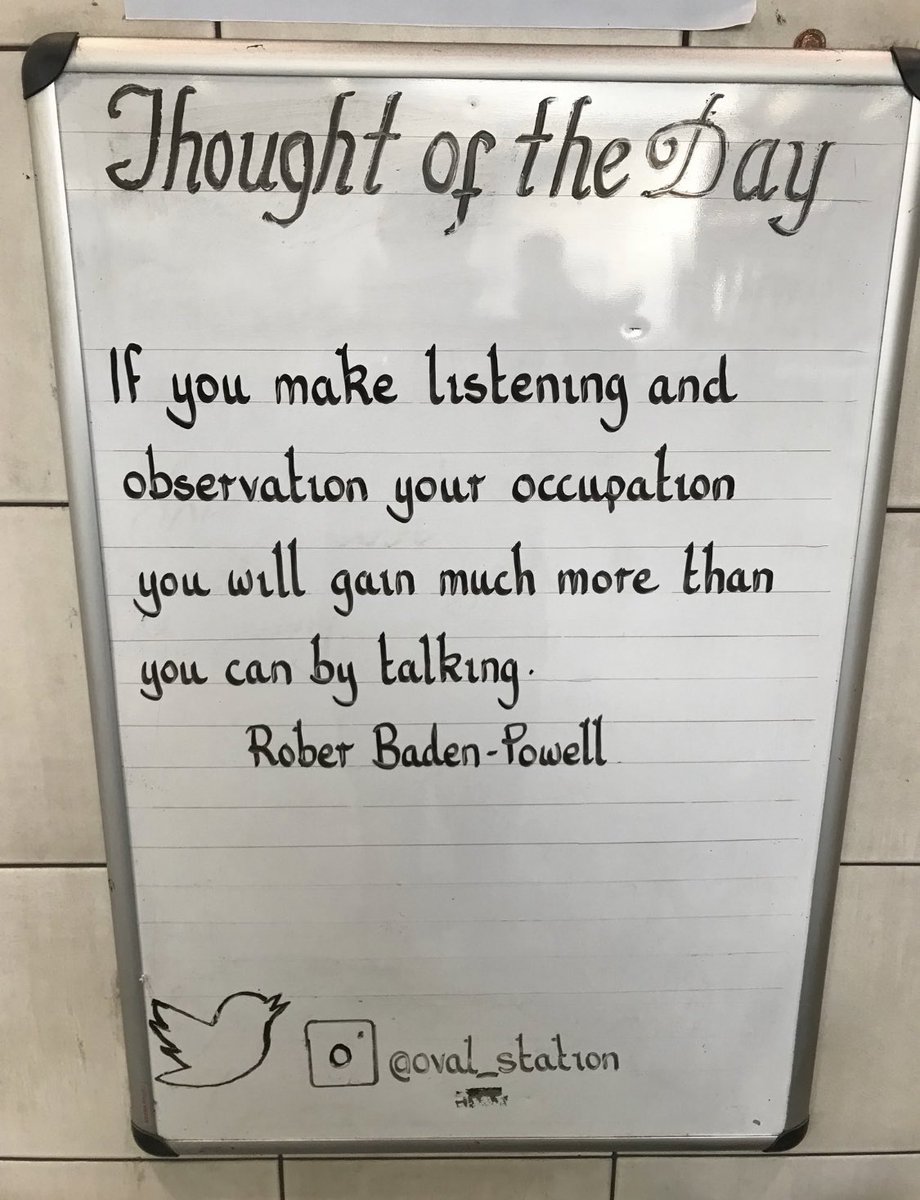 Thought of the Day
If you make listening and
observation your occupation
you will gain much more than
you can by talking.
Rober Baden-Powell
@oval_station